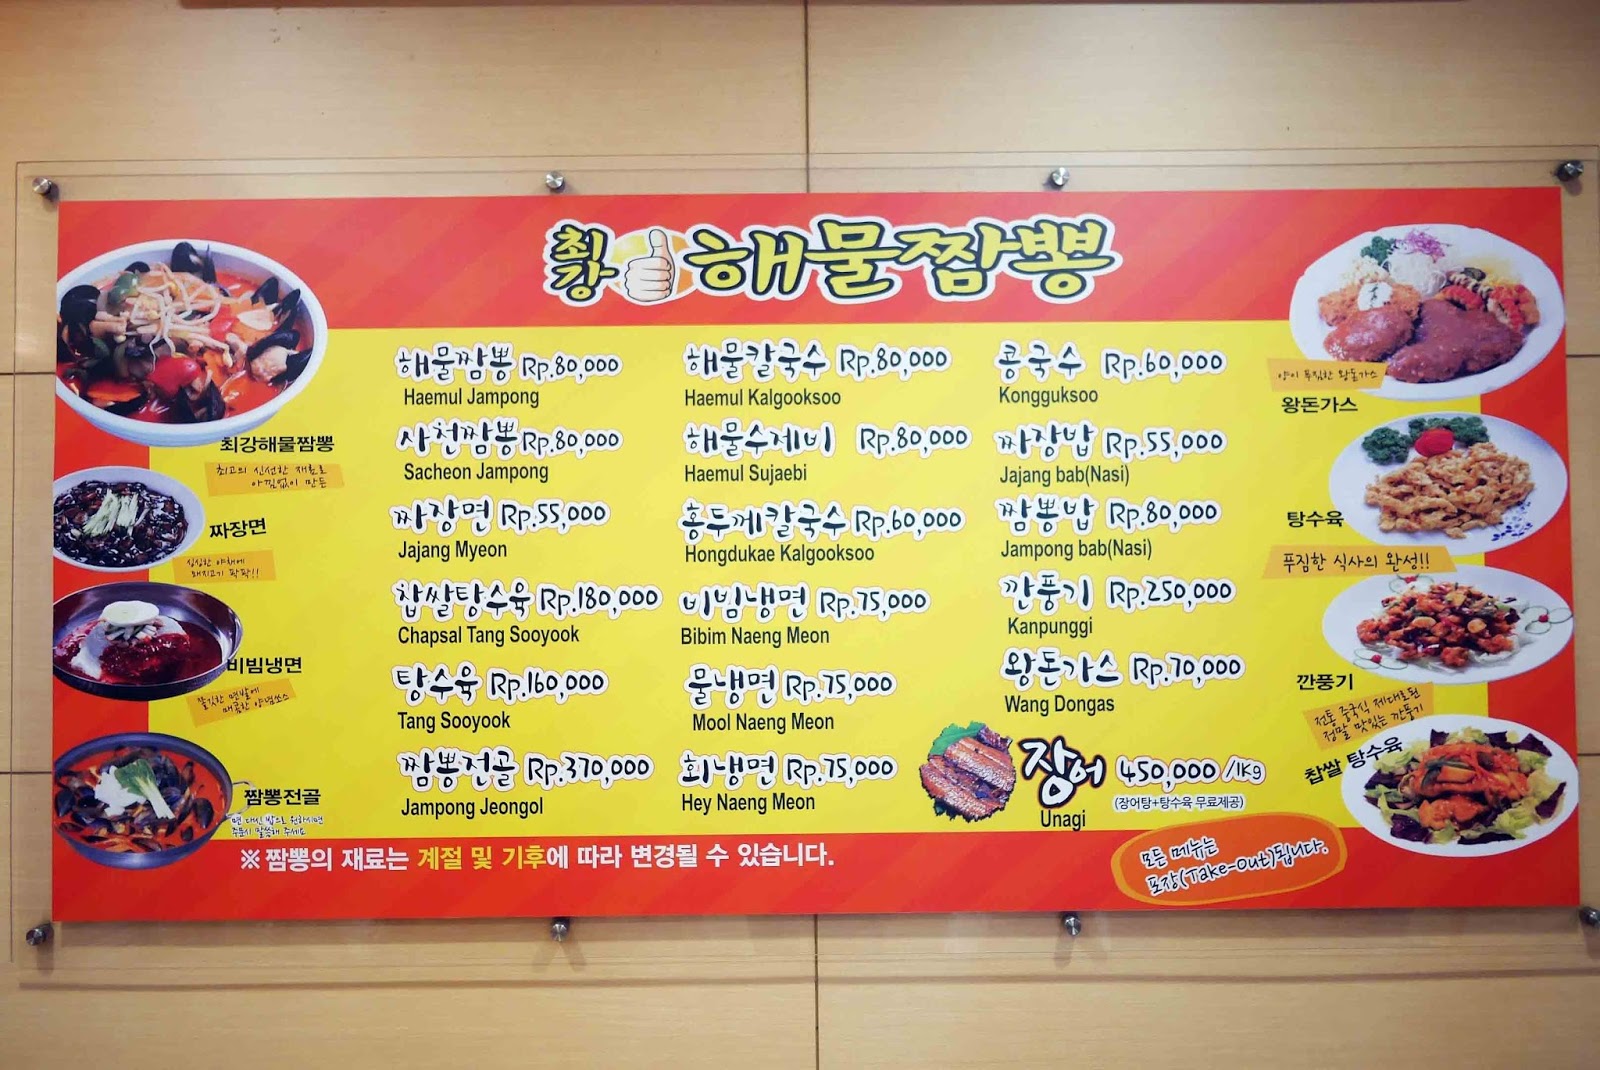 최강 해물짬뽕
해물짬뽕 Rp.80,000
Haemul Jampong
사천짬뽕 Rp.80,000
Sacheon Jampong
짜장면 Rp.55,000
Jajang Myeon
찹쌀탕수육 Rp.180,000
Chapsal Tang Sooyook
탕수육 Rp.160,000
Tang Sooyook
짬뽕전골 Rp.370,000
Jampong Jeongol
해물칼국수 Rp.80,000
Haemul Kalgooksoo
해물수제비 Rp.80,000
Haemul Sujaebi
홍두깨칼국수 Rp.60,000
Hongdukae Kalgooksoo
비빔냉면 Rp.75,000
Bibim Naeng Meon
물냉면 Rp.75,000
Mool Naeng Meon
회냉면 Rp.75,000
Hey Naeng Meon
콩국수 Rp.60,000
Kongguksoo
짜장밥 Rp.55,000
Jajang bab(Nasi)
짬뽕밥 Rp.80,000
Jampong bab(Nasi)
깐풍기 Rp.250,000
Kanpunggi
왕돈가스 Rp.70,000
Wang Dongas
장어 450,000 /1Kg
(장어탕+탕수육 무료제공)
Unagi
최강해물짬뽕
최고의 신선한 재료로
아낌없이 만든
짜장면
싱싱한 야채에
돼지고기 팍팍!!
비빔냉면
쫄깃한 면발에
매콤한 양념쏘스
짬뽕전골
면 대신 밥으로 원하시면
주문시 말씀해 주세요
양이 푸짐한 왕돈가스
왕돈가스
탕수육
푸짐한 식사의 완성!!
깐풍기
전통 중국식 제대로된
정말 맛있는 깐풍기
찹쌀 탕수육
※ 짬뽕의 재료는 계절 및 기후에 따라 변경될 수 있습니다.
모든 메뉴는
포장(Take-out)됩니다.